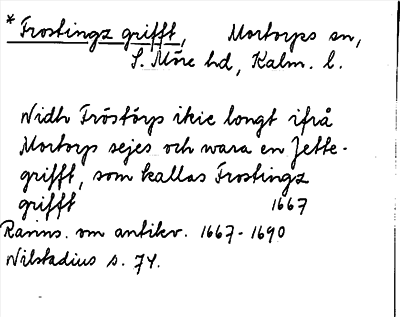 * Frostingz grifft, Mortorps sn,
S. Möre hd, Kalm. l.
Widh Fröstörps ikie longt ifrå
Mortorp sejes och wara en Jette-
grifft, som kallas Frostingz
grifft 1667
Ranns. om antikv. 1667-1690
Nilstadius s. 74.